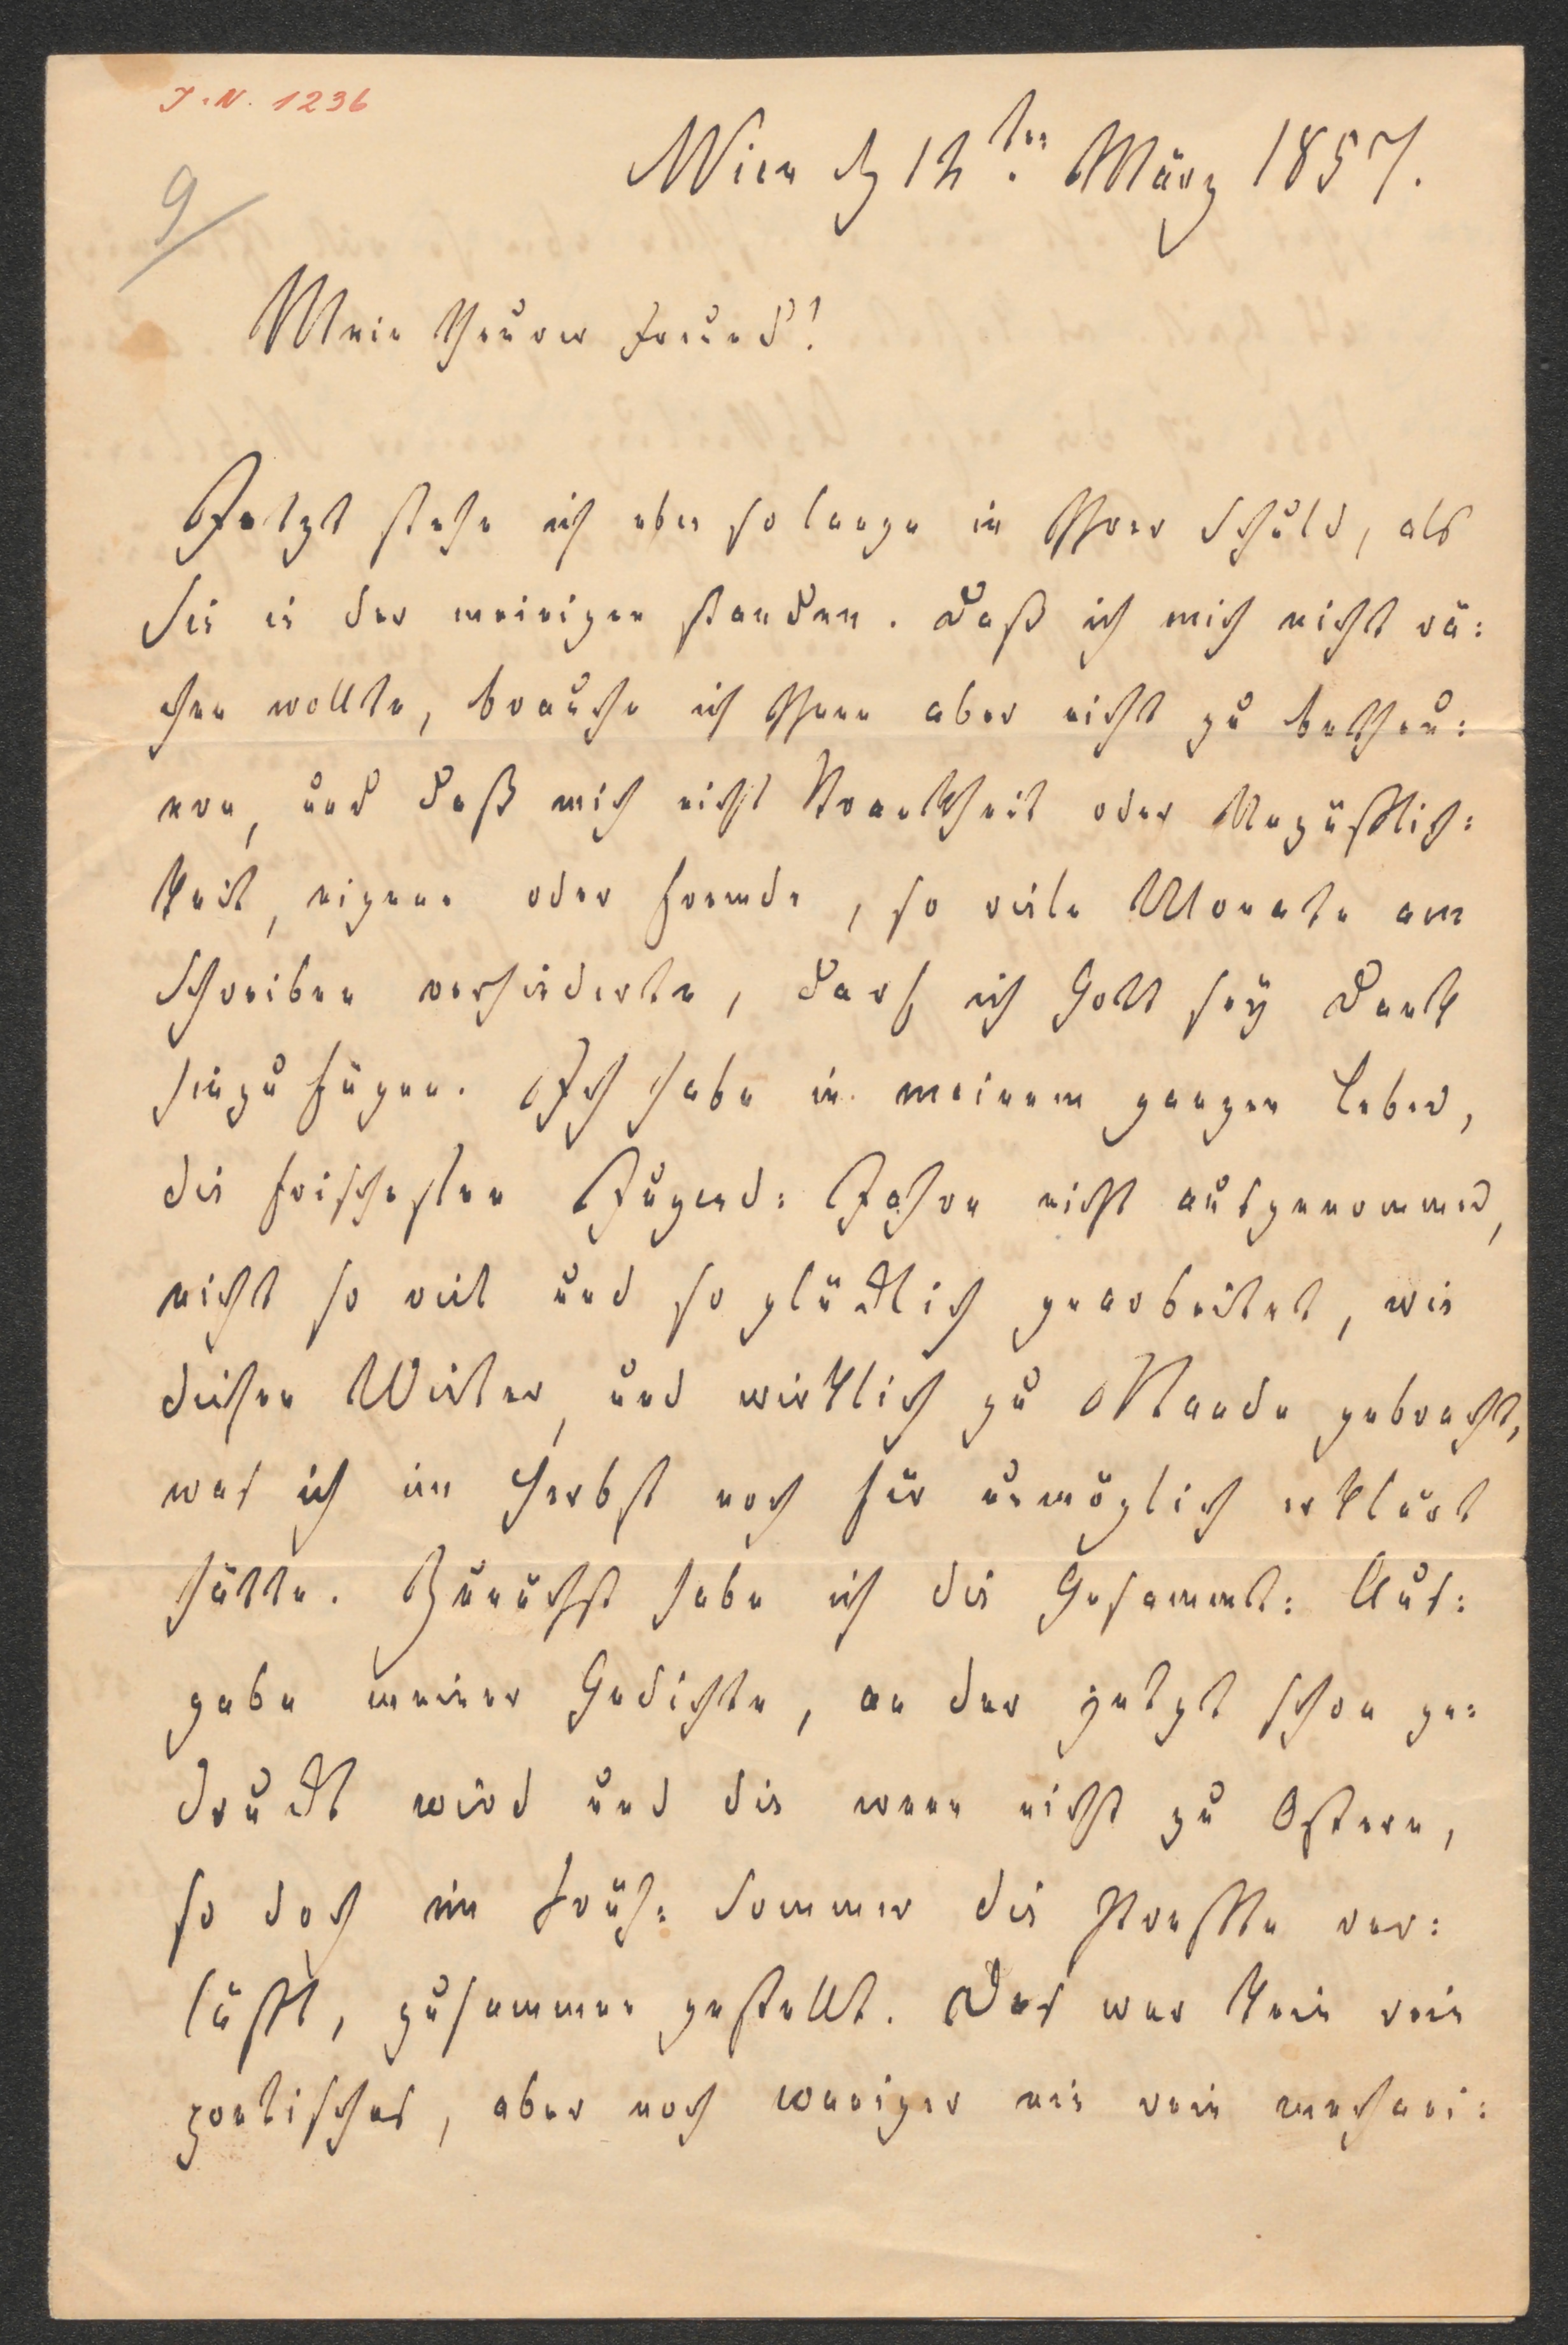 J.N. 1236
9
Wien d 12ten März 1857.
Mein theurer Freund!
Jetzt stehe ich eben so lange in Ihrer Schuld, als
Sie in der meinigen standen. Daß ich mich nicht rä:
chen wollte, brauche ich Ihnen aber nicht zu betheu:
ern, und daß mich nicht Krankheit oder Unpäßlich:
keit, eigene oder fremde, so viele Monate am
Schreiben verhinderte, darf ich Gott sey Dank
hinzu fügen. Ich habe in meinem ganzen Leben,
die frischesten Jugend: Jahre nicht ausgenommen,
nicht so viel und so glücklich gearbeitet, wie
diesen Winter, und wirklich zu Stande gebracht,
was ich im Herbst noch für unmöglich erklärt
hätte. Zunächst habe ich die Gesammt: Aus:
gabe meiner Gedichte, an der jetzt schon ge:
druckt wird und die wenn nicht zu Ostern,
so doch im Früh: Sommer die Presse ver:
läßt, zusammen gestellt. Das war kein rein
poetisches, aber noch weniger ein rein mechani: